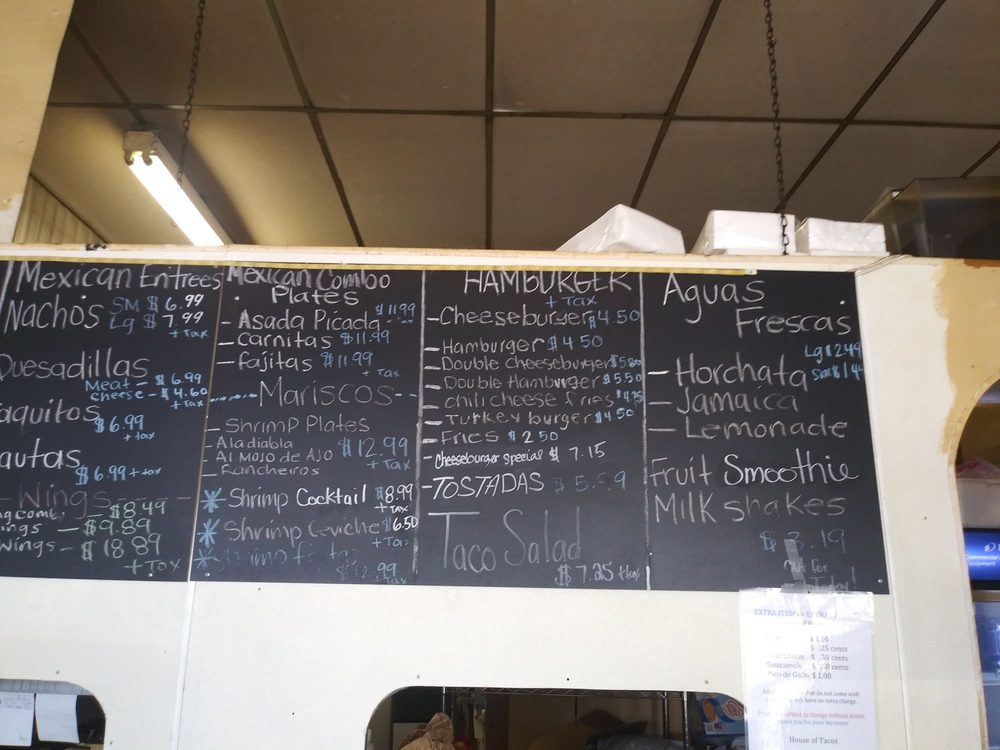 Mexican Entrees
Nachos SM $6.99
Lg $7.99
+ Tax
Quesadillas
Meat - $6.99
cheese - $4.60
+ Tax
aquitos
$6.99
+ tax
autas
$6.99 + tax
- Wings - - - -
$8.49
ngs - $9.89
Wings - $18.89
+ Tax
Mexican Combo
Plates
$11.99
- Asada Picada
- Carnitas $11.99
- fajitas $11.99
+ Tax
Mariscos
- Shrimp Plates
- Ala diabla
- Al Mojo de Ajo $12.99
- Rancheros + Tax
* Shrimp Cocktail $8.99
+ Tax
* Shrimp Ceviche $6.50
+ Tax
* Shrimp
$12.99
+ Tax
HAMBURGER
+ Tax
- Cheeseburger $4.50
- Hamburger $4.50
- Double Cheeseburger
- Double Hamburger $5.50
- chili cheese fries
- Turkey burger $4.50
- Fries $2.50
- Cheeseburger special $7.15
- TOSTADAS
Taco Salad
$7.25 + tax
Aguas
Frescas
Lg $2.49
- Horchata
- Jamaica
- Lemonade
Fruit Smoothie
Milk shakes
EXTRA ITEMS
cents
cents
Guacamole cents
Pico de Gallo $1.00
do not come with
will have an extra charge.
to change without notice
you for your business!
House of Tacos